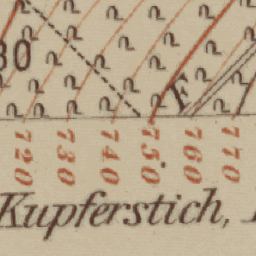 30
F
720 730 740 750 760 770
Kupferstich,